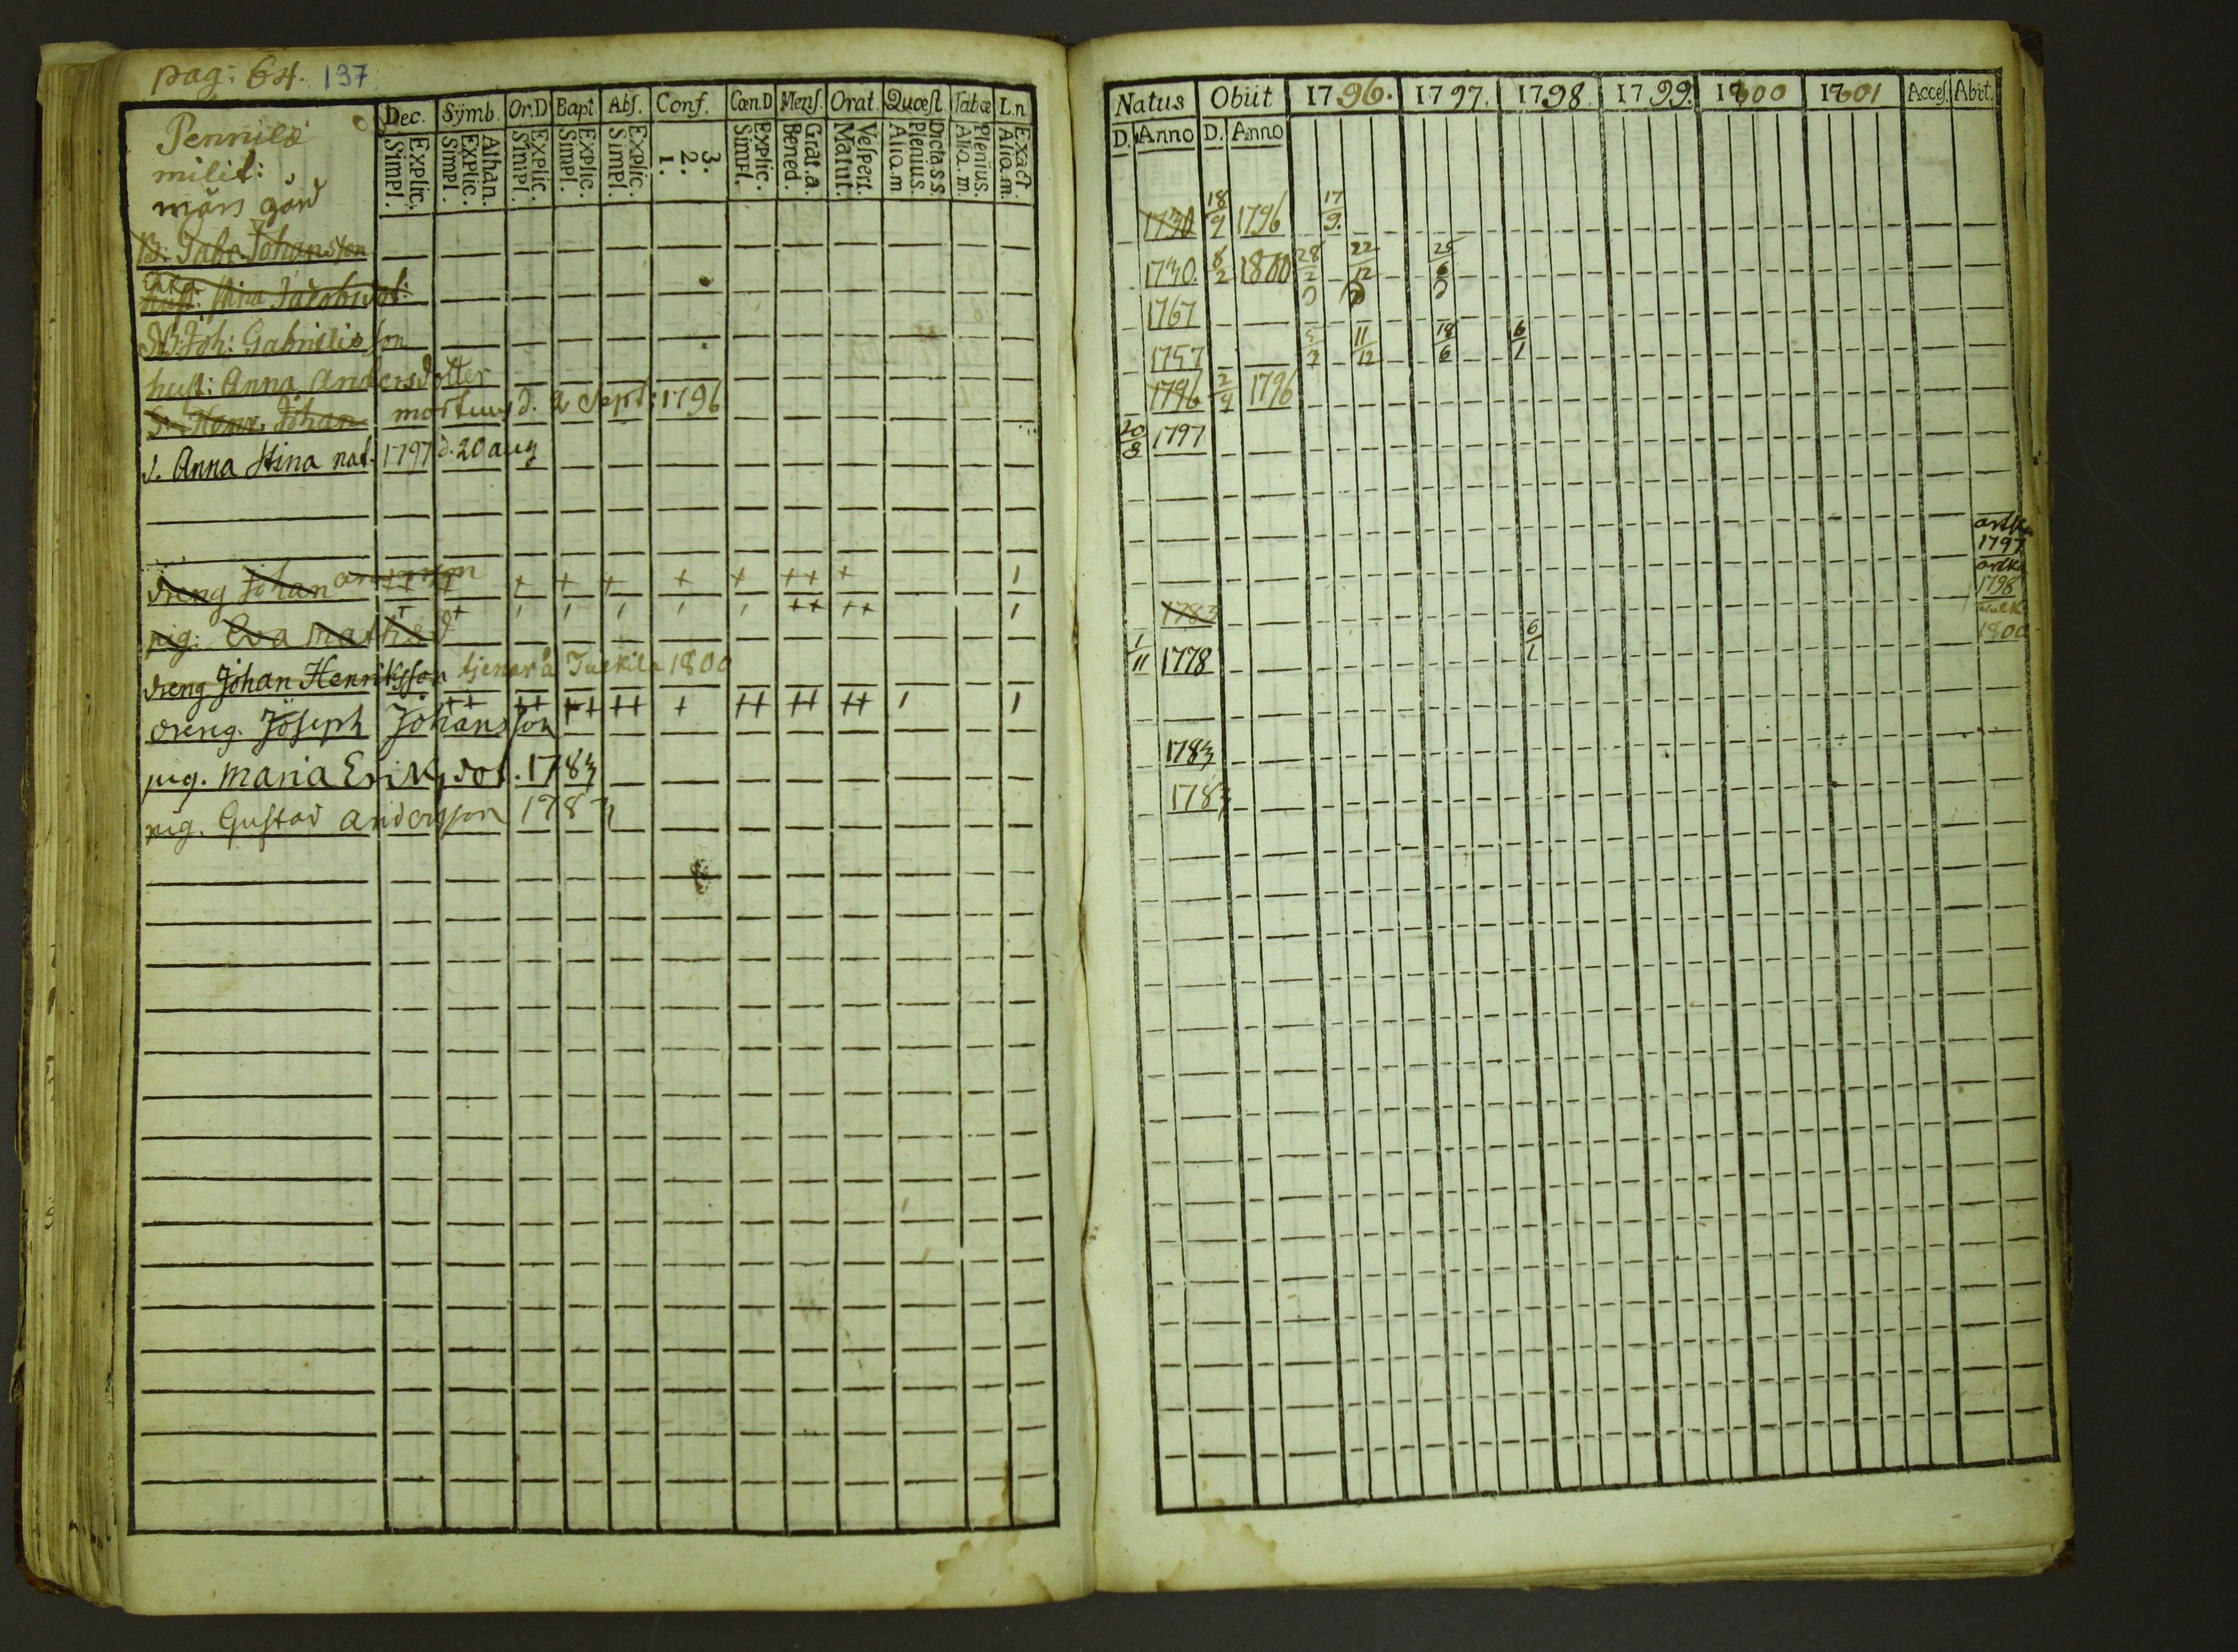 pag: 64. 137
Dec. Sÿmb. Or.D Bapt. Abſ. Conf. Cœn.D Menſ. Orat. Quœſt. Tab.œ L.n
Explic. Simpl. Athan. Explic. Simpl. Explic. Simpl. Explic. Simpl. Explic. Simpl. 3. 2. 1. Explic. Simpl. Grat.a. Bened. Veſpert. Matut. Dicta.s.s. Plenius. Aliq.m. Plenius. Aliq.m. Exact. Aliq.m.
Pennilä
milit:
mäns gård
B. Gabr. Johansson
Enka
hust. Stina Jacobsdot:
B. Joh: Gabrielsson
hust: Anna Andersdotter
S. Henr. Johan mortuus d. 2 Sept: 1796
d. Anna Stina nat. 1797 d. 20 aug
dreng Johan andersson ++ + + + + + + ++ + 1
pig: Eva Mathsd + + 1 1 1 1 1 ++ ++ 1
dreng Johan Henriksson tjenar å Tuckila 1800
dreng. Joseph Johansson ++ ++ ++ ++ + ++ ++ ++ 1 1
pig. Maria Eriksdot. 1783
pig. Gustav andersson 1783
Natus Obiit 1796. 1797. 1798 1799. 1800 1801 Acceſ. Abiit.
D. Anno D. Anno
1730 18/9 1796 17/9.
1730. 8/2 1800 28/2 22/12 25/6
1767
1757 5/7 11/12 18/6 6/1
1796 2/9 1796
20/8 1797
1797
1783 1798
1/11 1778 6/1 1800
1783
1783